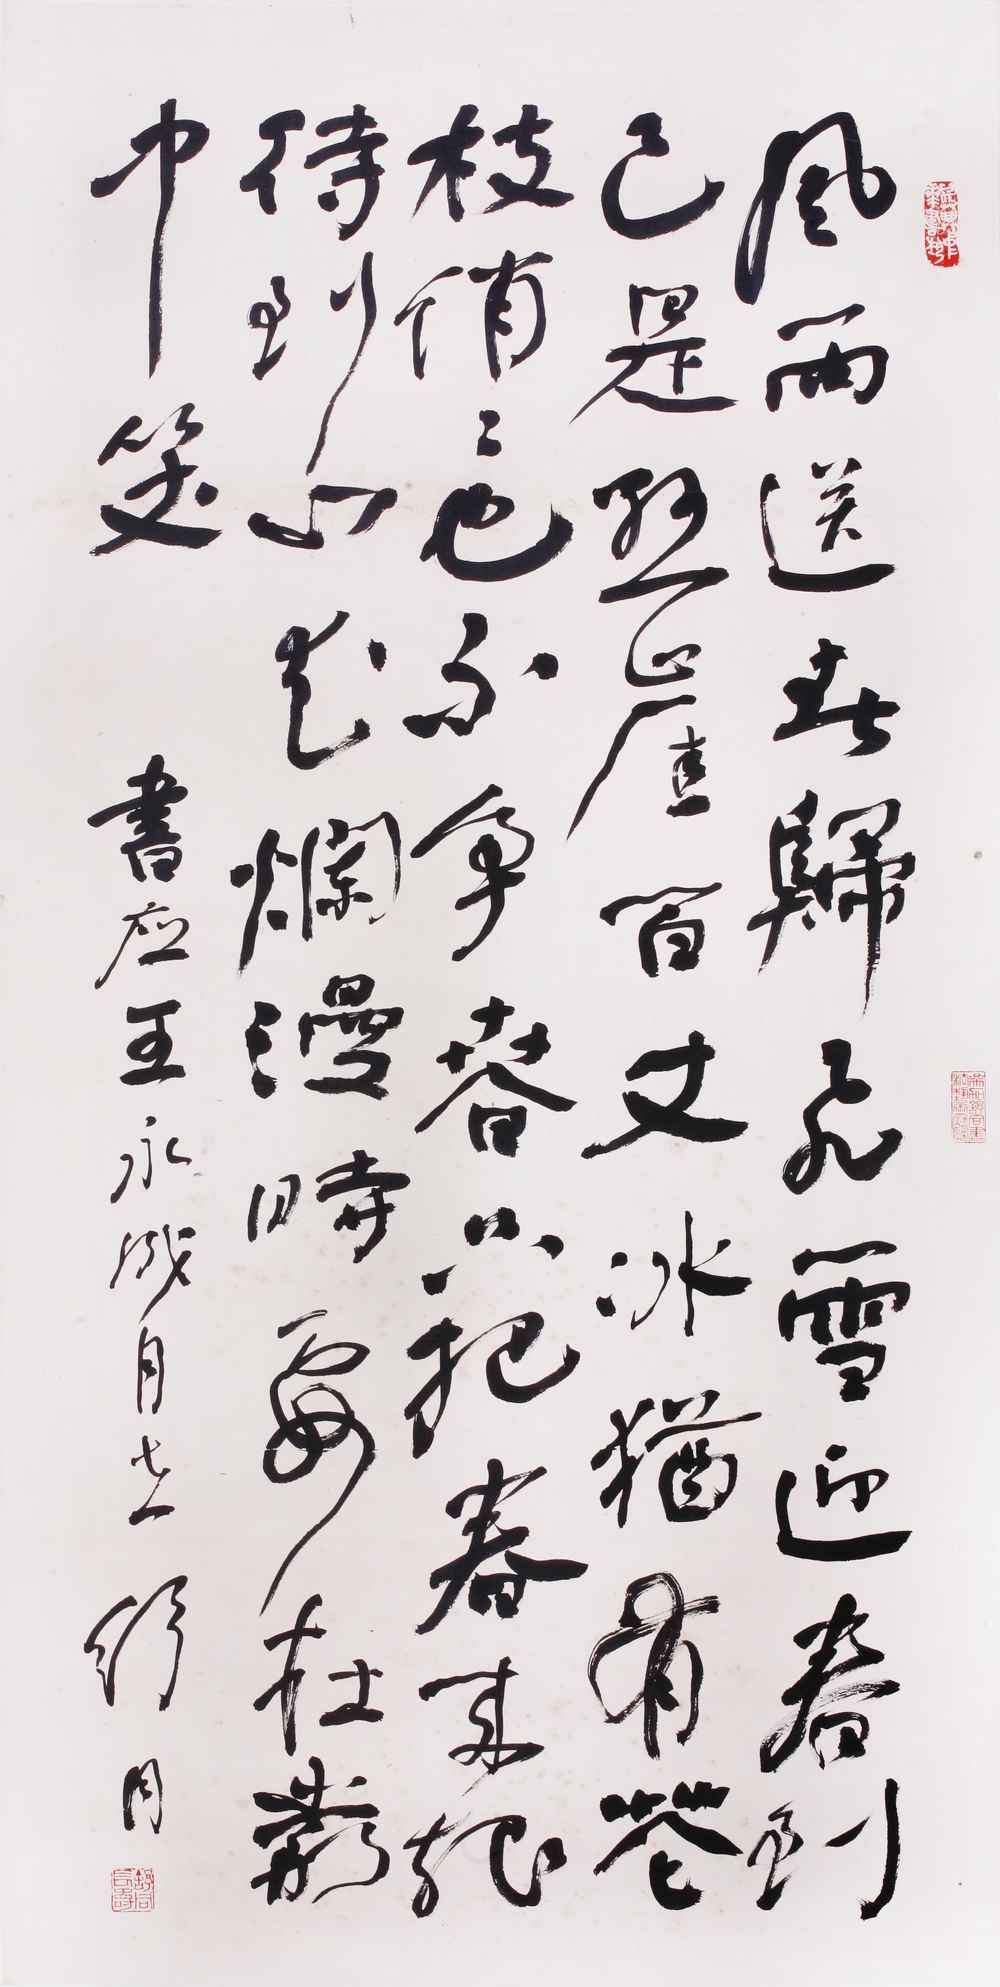 風雨送春歸飛雪迎春到
已是懸崖百丈冰猶有花
枝俏〻也不争春只把春来報
待到山花爛漫時她在叢
中笑 書應王永成同志 舒同